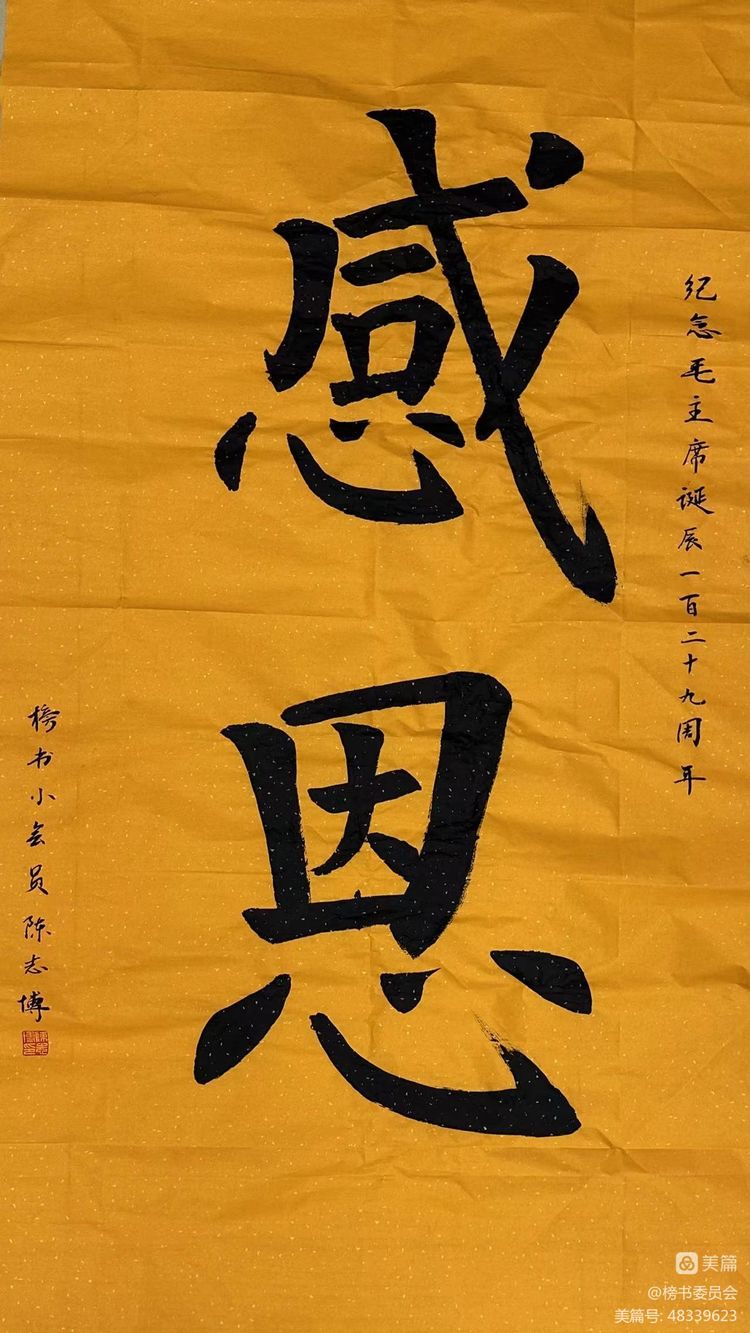 纪念毛主席诞辰一百二十九周年
感恩
榜书小会员陈志博
美篇
@榜书委员会
美篇号: 48339623